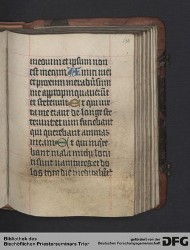 me sum et ipsum non
est mecum Amici mei
et proximi mei adversum
me appropinquaverunt
et steterunt Et qui iux
ta me erant de longe ste
terunt et vim faciebant
qui querebant animam
meam Et qui inq
bant mala michi locu
ti sunt vanitates et do
los tota die
Bibliothek des
Bischöflichen Priesterseminars Trier
gefördert von der
Deutschen Forschungsgemeinschaft
DFG